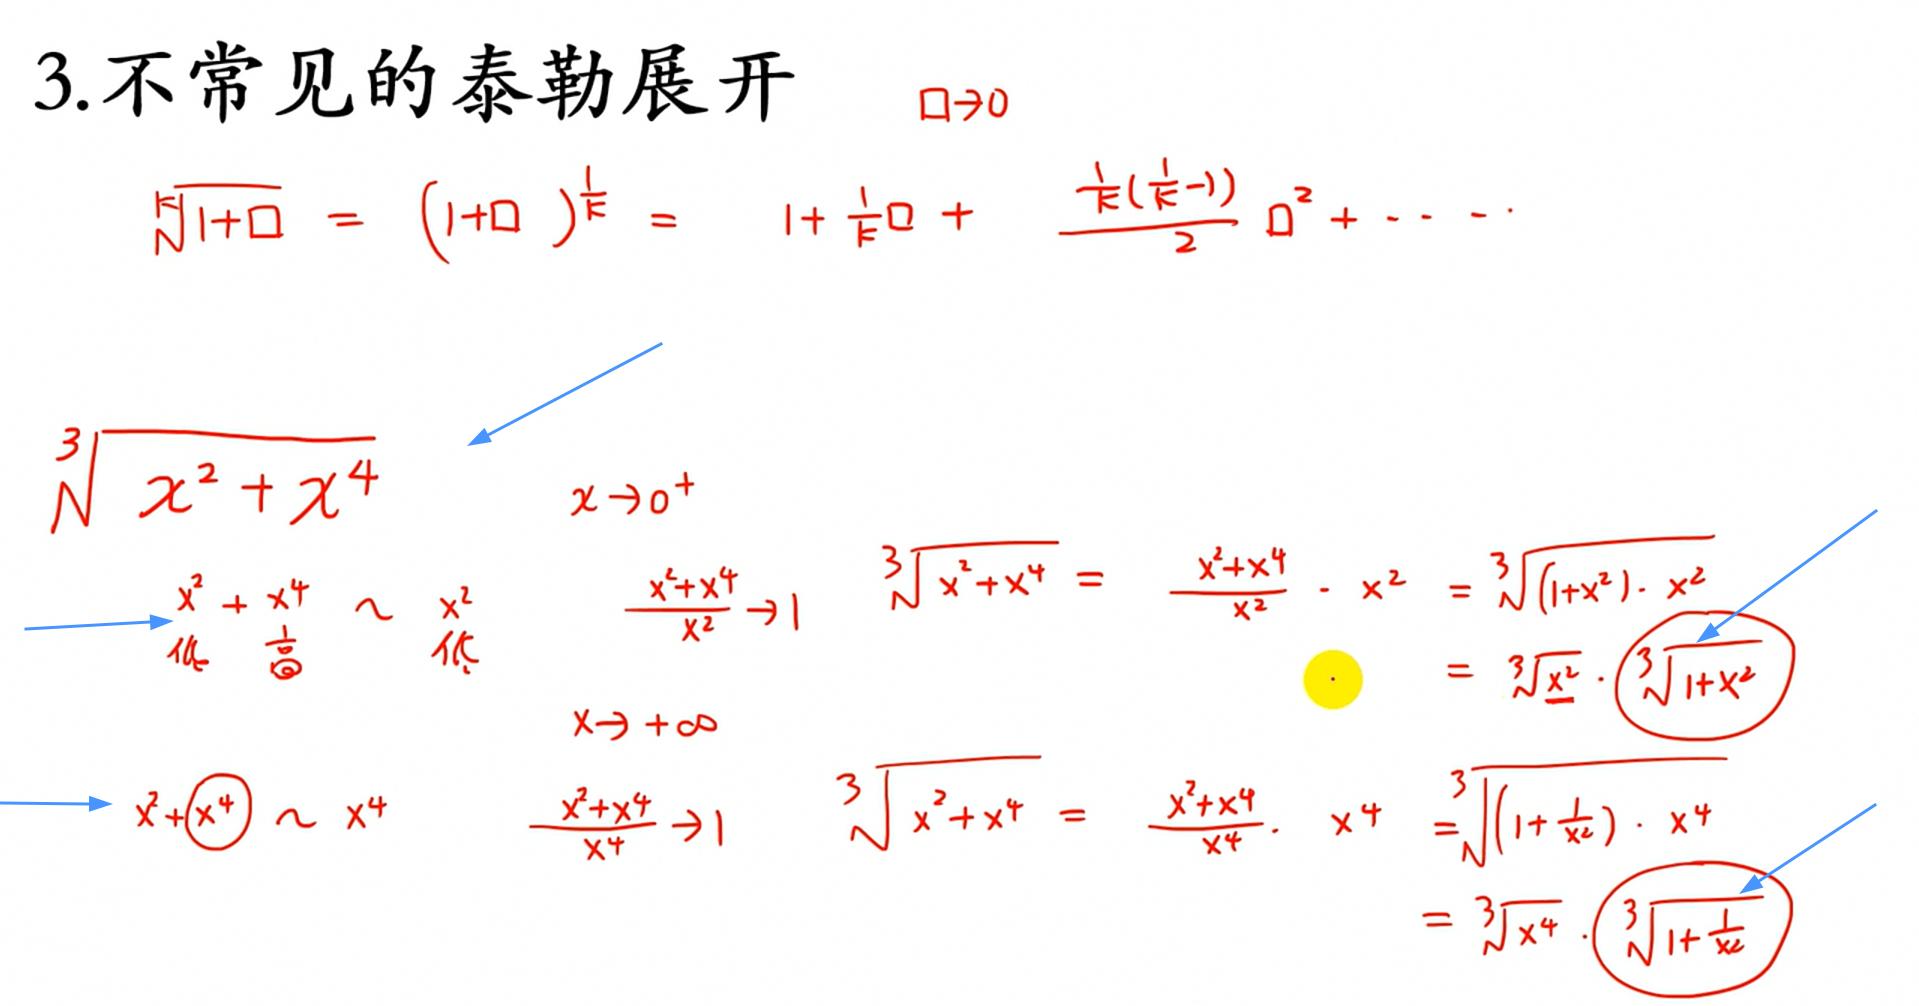 3.不常见的泰勒展开
□→0
ᵏ√(1+□) = (1+□)^(1/k) = 1 + 1/k □ + (1/k(1/k-1))/2 □² + ‑ ‑ ‑ ·
³√(x²+x⁴)
x→0⁺
x² + x⁴ ~ x²
低 高 低
(x²+x⁴)/x² →1
³√(x²+x⁴) = (x²+x⁴)/x² · x² = ³√((1+x²)·x²)
= ³√(x²) · ³√(1+x²)
x→+∞
x²+x⁴ ~ x⁴
(x²+x⁴)/x⁴ →1
³√(x²+x⁴) = (x²+x⁴)/x⁴ · x⁴ = ³√((1+1/x²)·x⁴)
= ³√(x⁴) · ³√(1+1/x²)